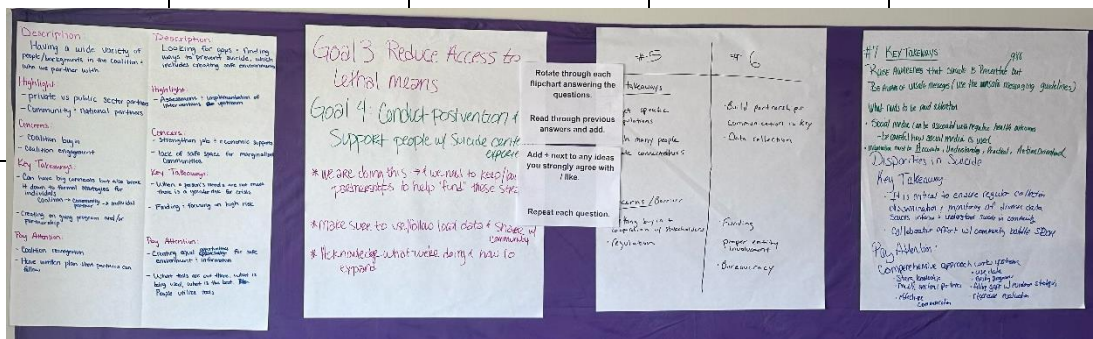 Description
Having a wide variety of
people/backgrounds in the coalition +
who we partner with.
Highlight
- private vs public sector partners
- Community + national partners
Concerns:
- Coalition buy in
- Coalition engagement
Key Takeaways:
- Can have big connects but also break
it down to formal strategies for
individuals
Coalition → community → individual
- Creating on going program and/or
Partnership
Pay Attention:
- Coalition recognition
- Have written plan that partners can
follow
Description
Looking for gaps + finding
ways to prevent suicide, which
includes creating safe environments
Highlight:
- Assessment + implementation of
interventions upstream
Concerns:
- Strengthen jobs + economic supports
- lack of safe space for marginalized
Communities
Key Takeaways:
- When a person's needs are not met
there is a greater risk for crisis
- Finding + focusing on high risk
Pay Attention:
- Creating equal opportunities for safe
environment + information
- What tools are out there, what is
being used, what is the best
People utilize tools
Goal 3 Reduce Access to
Lethal means
Goal 4: Conduct postvention &
Support people w/ Suicide
* we are doing this → we need to keep
partnerships to help "find" these
* make sure to use/follow local data & share w/
community
* Acknowledge what we're doing & how to
expand
Rotate through each
flipchart answering the
questions.
Read through previous
answers and add.
Add + next to any ideas
you strongly agree with
/ like.
Repeat each question.
#5
takeaways
specific
many people
/Barrier
buy in +
of stakeholders
regulation
#6
· Build partnerships
Communication is key
· Data collection
· Funding
proper entity
involvement
· Bureaucracy
#7 Key Takeaways
· Raise Awareness that suicide is Preventable but
Be Aware of unsafe messages (use the unsafe messaging guidelines)
What needs to be paid attention
· Social media can be associated with negative health outcomes
- be careful how social media is used
· Information must be Accurate, Understanding, Practical, Action Oriented
Disparities in Suicide
Key Takeaway
· It is critical to ensure regular collection
dissemination, monitoring of diverse data
Sources inform + understand suicide in community
· Collaborative effort w/ community
Pay Attention:
Comprehensive approach
· use data